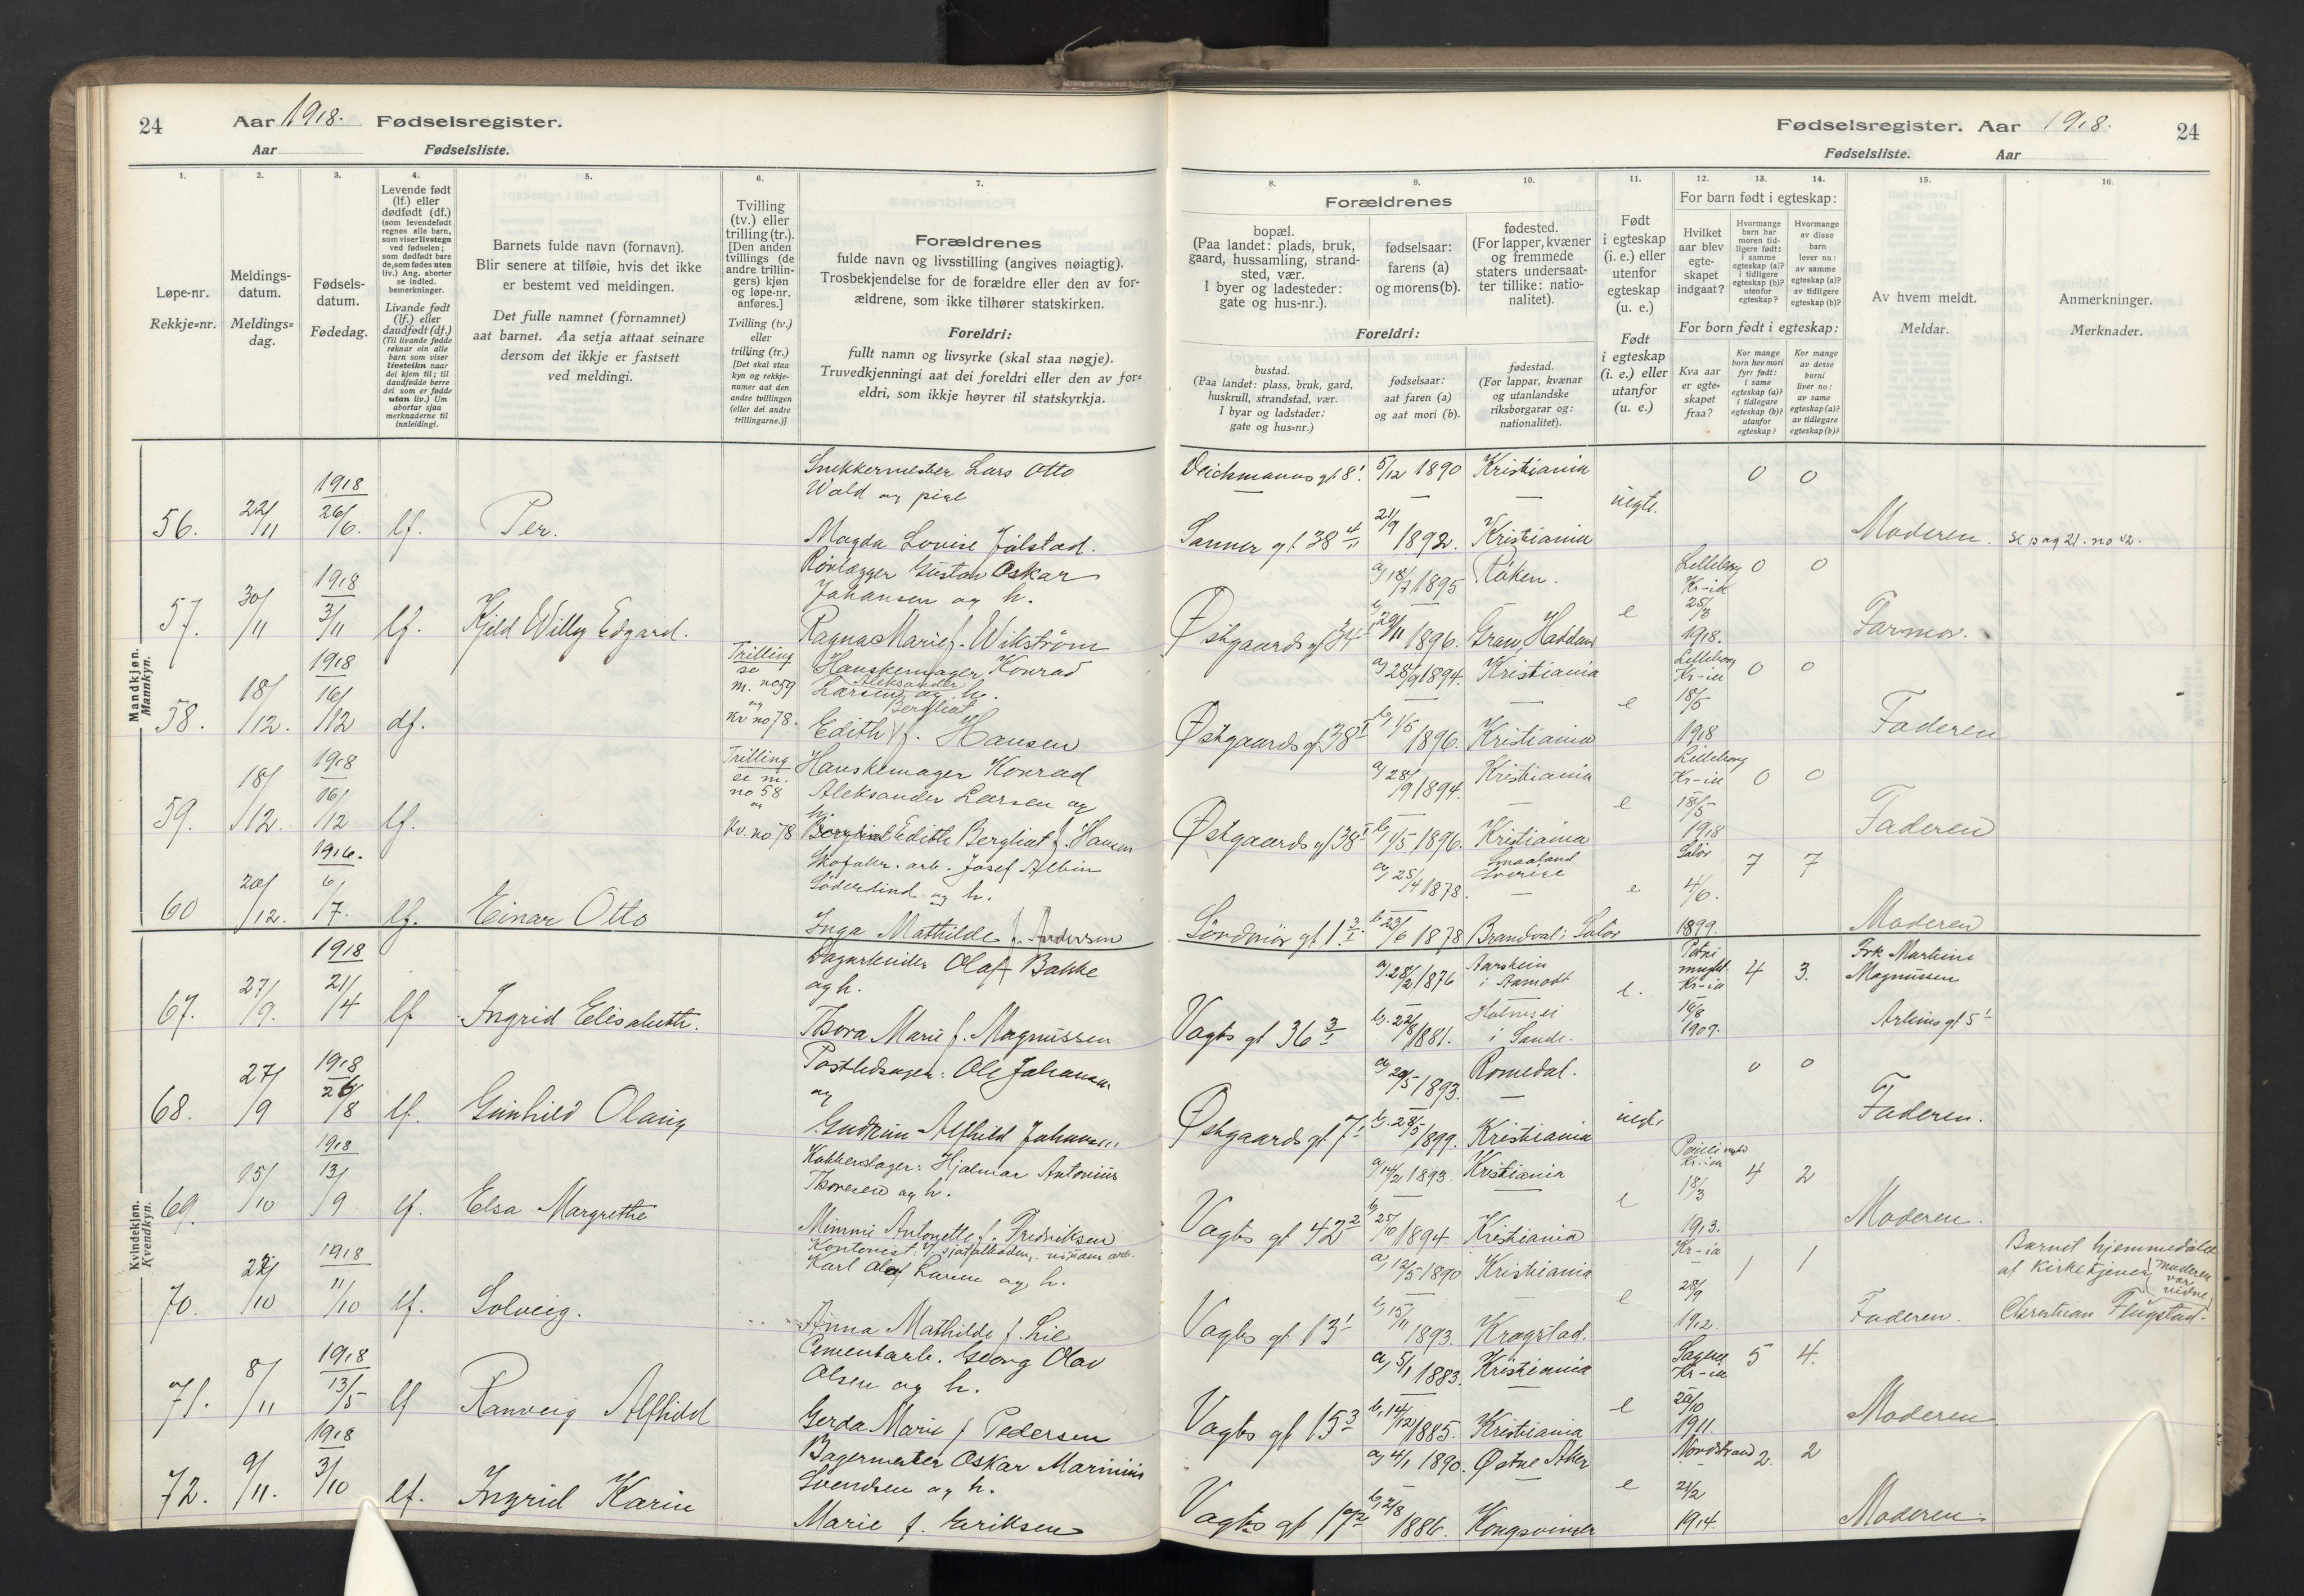 24
Aar 1918. Fødselsregister.
Aar Fødselsliste.
Fødselsregister. Aar 1918.
24
Fødselsliste. Aar
1. 2. 3. 4. 5. 6. 7.
Løpe-nr.
Rekkje=nr.
Meldings-
datum.
Meldings=
dag.
Fødsels-
datum.
Fødedag.
Levende født
(lf.) eller
dødfødt (df.)
(som levendefødt
regnes alle barn,
som viser livstegn
ved fødselen;
som dødfødt bare
de, som fødes uten
liv.) Ang. aborter
se indled.
bemerkninger.
Livande født
(lf.) eller
daudfødt (df.)
(Til livande fødde
reknar ein alle
barn som viser
livsteikn naar
dei kjem til; til
daudfødde berre
dei som er fødde
utan liv.) Um
abortar sjaa
merknaderne til
innleidingi.
Barnets fulde navn (fornavn).
Blir senere at tilføie, hvis det ikke
er bestemt ved meldingen.
Det fulle namnet (fornamnet)
aat barnet. Aa setja attaat seinare
dersom det ikkje er fastsett
ved meldingi.
Tvilling
(tv.) eller
trilling (tr.).
[Den anden
tvillings (de
andre trillin-
gers) kjøn
og løpe-nr.
anføres.]
Tvilling (tv.)
eller
trilling (tr.)
[Det skal staa
kyn og rekkje-
numer aat den
andre tvillingen
(eller dei andre
trillingarne.)]
Forældrenes
fulde navn og livsstilling (angives nøiagtig).
Trosbekjendelse for de forældre eller den av for-
ældrene, som ikke tilhører statskirken.
Foreldri:
fullt namn og livsyrke (skal staa nøgje).
Truvedkjenningi aat dei foreldri eller den av for=
eldri, som ikkje høyrer til statskyrkja.
8. 9. 10. 11. 12. 13. 14. 15. 16.
Forældrenes
bopæl.
(Paa landet: plads, bruk,
gaard, hussamling, strand-
sted, vær.
I byer og ladesteder:
gate og hus-nr.).
fødselsaar:
farens (a)
og morens (b).
fødested.
(For lapper, kvæner
og fremmede
staters undersaat-
ter tillike: natio-
nalitet).
Foreldri:
bustad.
(Paa landet: plass, bruk, gard,
huskrull, strandstad, vær.
I byar og ladstader:
gate og hus=nr.)
fødselsaar:
aat faren (a)
og aat mori (b).
fødestad.
(For lappar, kvænar
og utanlandske
riksborgarar og:
nationalitet).
Født
i egteskap
(i. e.) eller
utenfor
egteskap
(u. e.)
Født
i egteskap
(i. e.) eller
utanfor
(u. e.)
For barn født i egteskap:
Hvilket
aar blev
egte-
skapet
indgaat?
Hvormange
barn har
moren tid-
ligere født:
i samme
egteskap (a)?
i tidligere
egteskap (b)?
utenfor
egteskap?
Hvormange
av disse
barn
lever nu:
av samme
egteskap (a)?
av tidligere
egteskap (b)?
For born født i egteskap:
Kva aar
er egte=
skapet
fraa?
Kor mange
born hev mori
fyrr født:
i same
egteskap (a)?
i tidlegare
egteskap (b)?
utanfor
egteskap?
Kor mange
av desse
borni
liver no:
av same
egteskap (a)?
av tidlegare
egteskap (b)?
Av hvem meldt.
Meldar.
Anmerkninger.
Merknader.
Mandkjøn.
Mannkyn.
56. 22/11 1918 26/6. lf. Per.
Snekkermester Lars Otto
Wold og pige
Magda Lovise Jölstad.
Deichmanns gt 8. 5/12 1890 Kristiania
Sanner gt. 38 4/11 21/9 1892. Kristiania uegte. 0 0 Moderen. se pag 21. no 42.
57. 30/11 1918 3/11 lf. Kjeld Willy Edgard.
Rörlægger Gustav Oskar
Johansen og h.
Ragna Marie f. Wikström
a) 18/7 1895 Röken.
Østgaards gt 34 1896. Gran, Hadeland e
Lilleborg Kr-ia 25/3 1918. 0 0 Farmor.
58. 18/12. 1918 16/12 df.
Trilling se m. no 59 og Kv no 78.
Hanskemager Konrad
Aleksander
Larsen og h.
Bergliot
Edith f. Hansen
a) 28/9 1894. Kristiania
Østgaards gt 38 I b) 1/5 1896. Kristiania e
Lilleborg Kr-ia 18/5 1918 0 0 Faderen
59. 18/12. 1918 16/12 lf.
Trilling se m. no 58 og Kv. no 78
Hanskemager Konrad
Aleksander Larsen og
h. Edith Bergliot f. Hansen
a) 28/9 1894. Kristiania
Østgaards gt 38 I b) 1/5 1896. Kristiania e
Lilleborg Kr-ia 18/5 1918 0 0 Faderen
60 20/12. 1916. 6/7. lf. Einar Otto
Skofabr. arb. Josef Albin
Söderlind og h.
Inga Mathilde f. Andersen
a) 25/4 1878. Smaaland Sverige
Sördmör gt 1 3/I b 23/6 1878 Brandval i Solör e
Solör 4/6. 1899. 7 7 Moderen
Kvindekjøn.
Kvendkyn.
67. 27/9. 1918 21/4 lf. Ingrid Elisabeth.
Olaf Bakke
og h.
Thora Marie f. Magnussen
a. 28/2 1876 i Aamodt
Vagts gt 36 3/I b. 22/8 1881. i Sande. e.
Kr-ia 10/8 1907. 4 3.
Frk Martine
Magnussen
68. 27/9 1918 26/8 lf. Gunhild Olaug
Postbudsager: Ole Johansen
og
Gudrun Alfhild Johansen
a) 20/5 1893. Romedal.
Østgaards gt 7 I b. 28/5 1899. Kristiania uegte 0 0 Faderen.
69. 15/10 1918 13/9 lf. Elsa Margrethe
Kobberslager: Hjalmar Antonius
Thoresen og h.
Mimmi Antonette f. Fredriksen
a) 14/2 1893. Kristiania
Vagts gt 42 2 b 25/10 1894 Kristiania e
Kr-ia 18/3 1913. 4 2 Moderen.
70. 22/10 1918 11/10 lf. Solveig.
Kontorist
Karl Olaf Larsen og h.
Anna Mathilde f. Lie
a) 12/5 1890 Kristiania
Vagts gt 13 I b) 15/11 1893. Kragstad. e
Kr-ia 28/9 1912. 1 1 Faderen.
Barnet hjemmedöbt
af Kirketjener
(moderen var vidne)
Christian Flugstad.
71. 8/11 1918 13/5 lf Ranveig Alfhild
Cementarb. Georg Olav
Olsen og h.
Gerda Marie f Pedersen
a) 5/1 1883. Kristiania
Vagts gt 15 3 b. 14/12 1885. Kristiania e
Sagene Kr-ia 20/10 1911. 5 4. Moderen
72. 9/11. 1918 3/10 lf. Ingrid Karin
Bagermester Oskar Marinius
Svendsen og h.
Marie f. Eriksen
a) 4/1 1890. Østre Aker
Vagts gt 17 b) 2/8 1886. Kongsvinger e
Nordstrand 21/2 1914. 2. 2 Moderen.